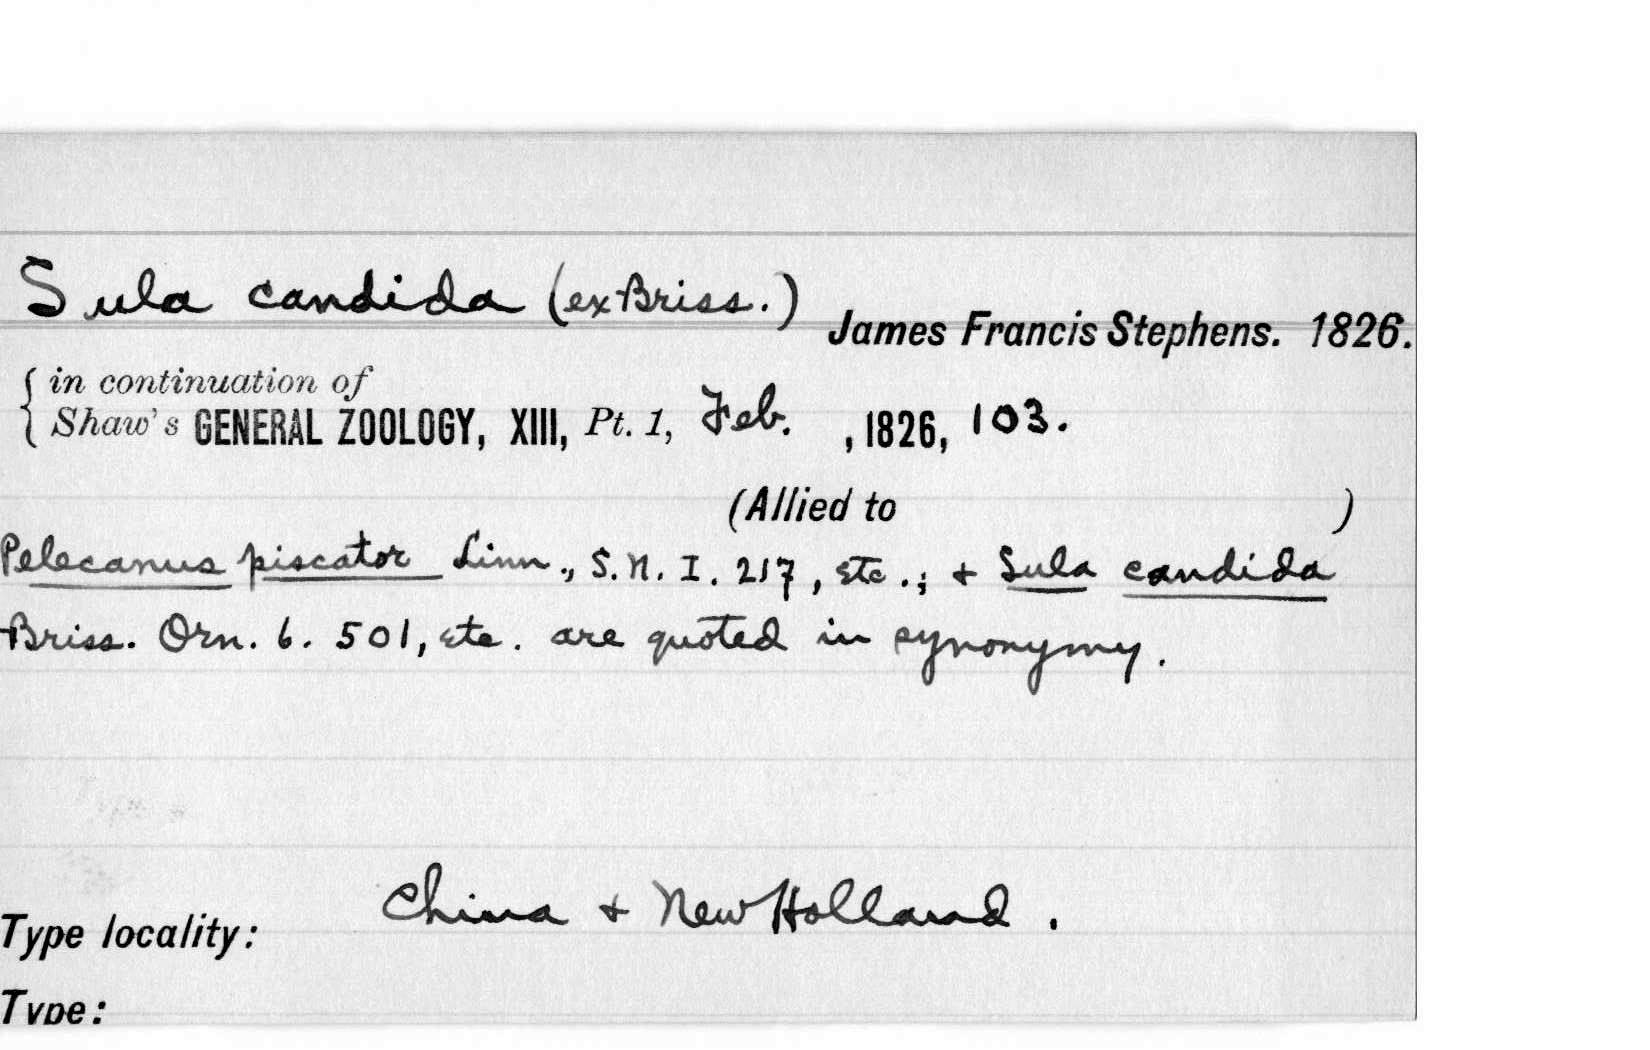 Sula candida (ex Briss.)
James Francis Stephens. 1826.
{ in continuation of
Shaw's GENERAL ZOOLOGY, XIII, Pt. 1, Feb. , 1826, 103.
(Allied to )
Pelecanus piscator Linn., S.N. I. 217, etc.; + Sula candida
Briss. Orn. 6. 501, etc. are quoted in synonymy.
China + New Holland.
Type locality:
Type: